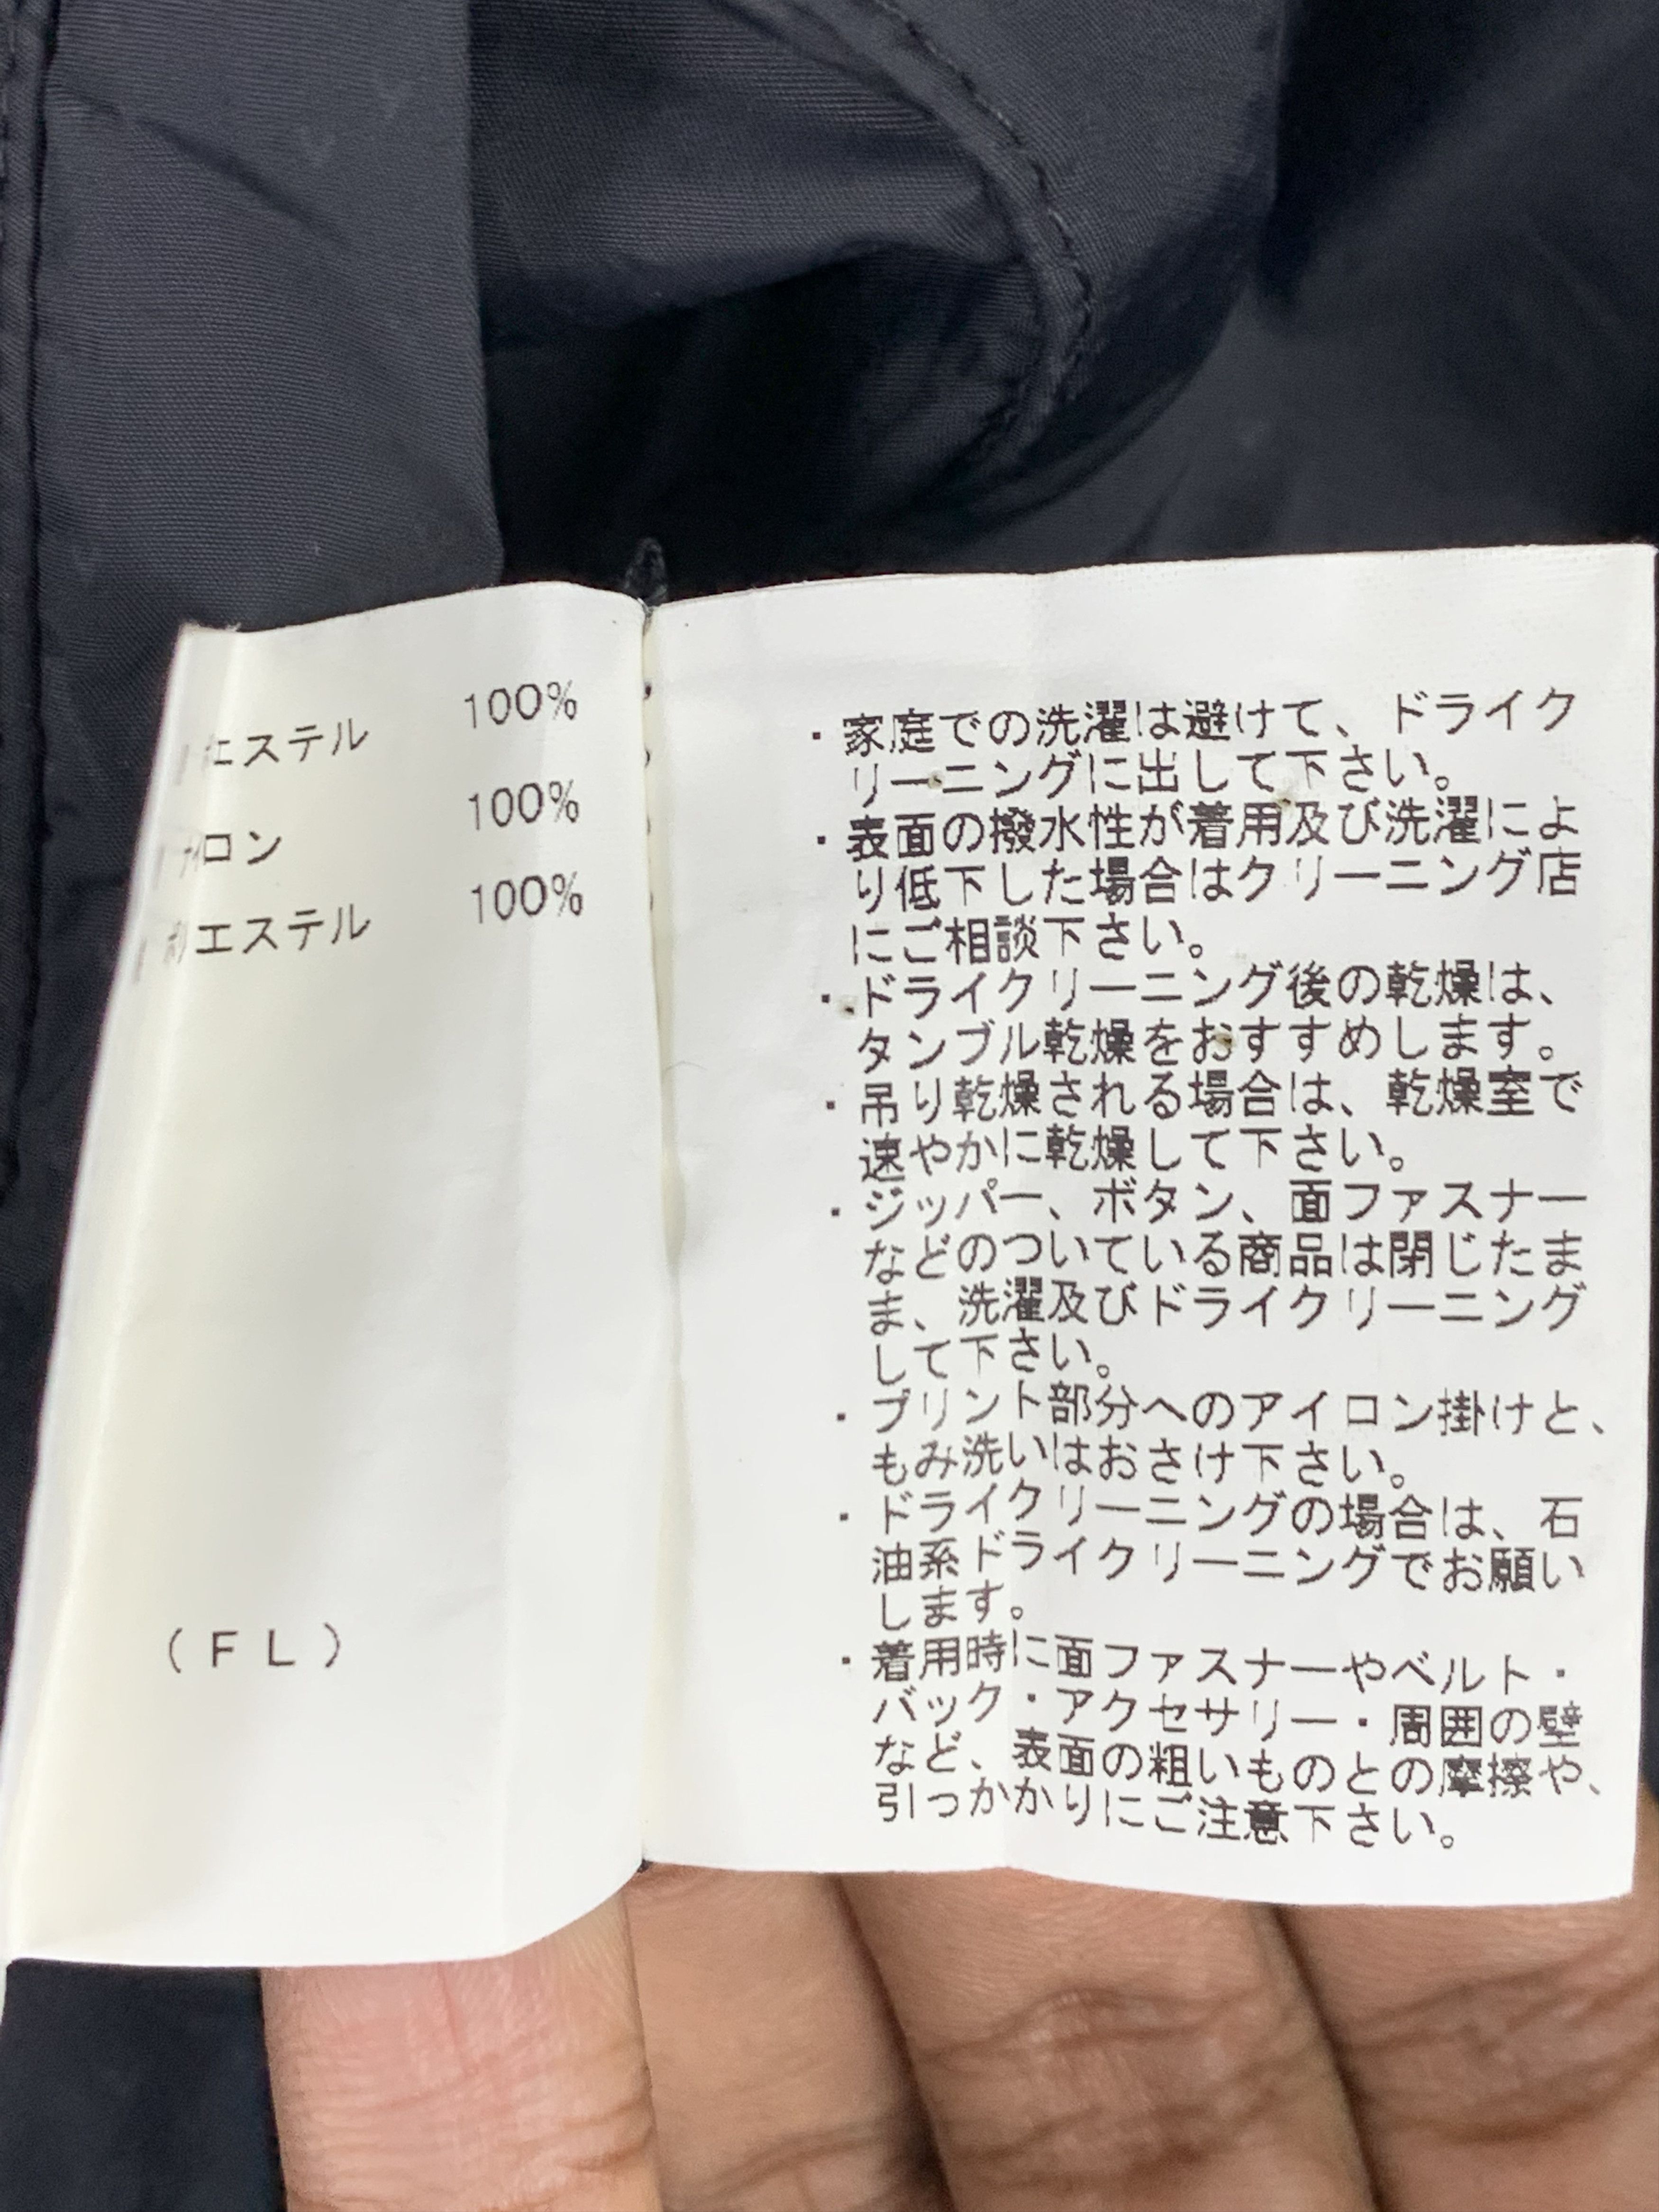 エステル 100%
ロン 100%
エステル 100%
(FL)
・家庭での洗濯は避けて、ドライク
リーニングに出して下さい。
・表面の撥水性が着用及び洗濯によ
り低下した場合はクリーニング店
にご相談下さい。
・ドライクリーニング後の乾燥は、
タンブル乾燥をおすすめします。
・吊り乾燥される場合は、乾燥室で
速やかに乾燥して下さい。
・ジッパー、ボタン、面ファスナー
などのついている商品は閉じたま
ま、洗濯及びドライクリーニング
して下さい。
・プリント部分へのアイロン掛けと、
もみ洗いはおさけ下さい。
・ドライクリーニングの場合は、石
油系ドライクリーニングでお願い
します。
・着用時に面ファスナーやベルト・
バック・アクセサリー・周囲の壁
など、表面の粗いものとの摩擦や、
引っかかりにご注意下さい。